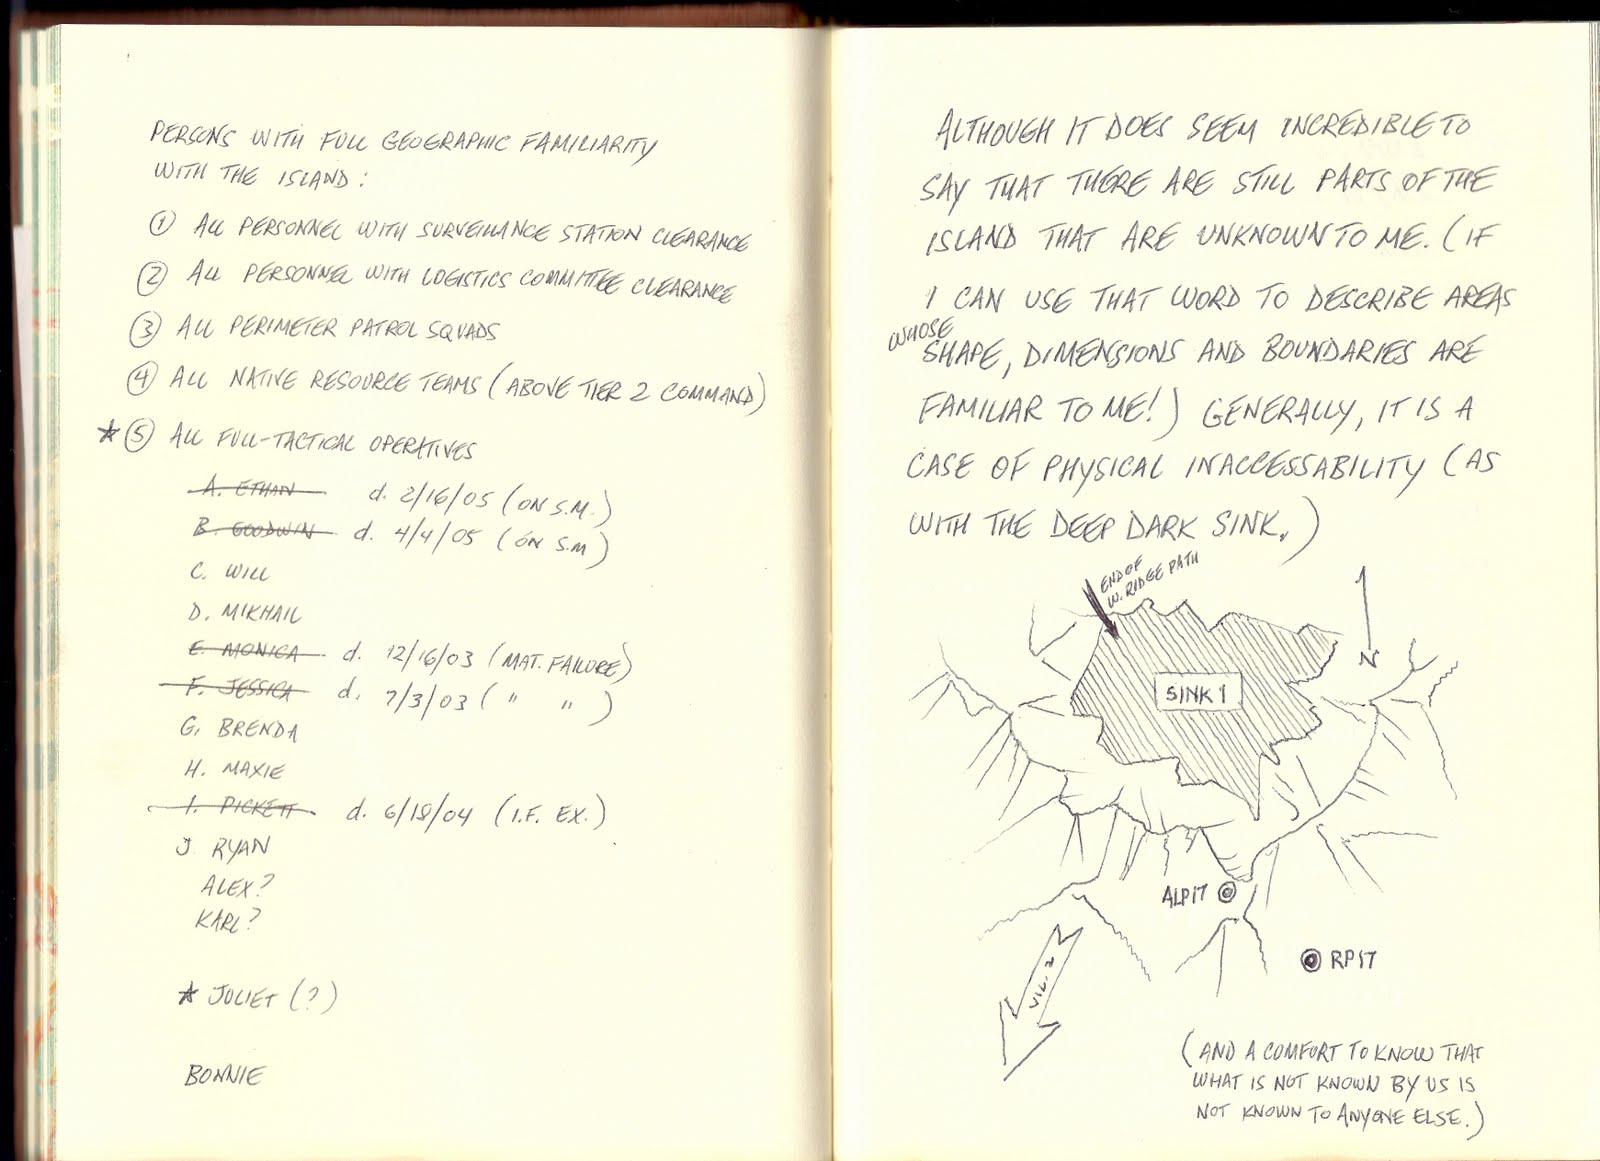 PERSONS WITH FULL GEOGRAPHIC FAMILIARITY
WITH THE ISLAND:
① ALL PERSONNEL WITH SURVEILLANCE STATION CLEARANCE
② ALL PERSONNEL WITH LOGISTICS COMMITTEE CLEARANCE
③ ALL PERIMETER PATROL SQUADS
④ ALL NATIVE RESOURCE TEAMS (ABOVE TIER 2 COMMAND)
★ ⑤ ALL FULL-TACTICAL OPERATIVES
A. ETHAN d. 2/16/05 (ON S.M.)
B. GOODWIN d. 4/4/05 (ON S.M)
C. WILL
D. MIKHAIL
E. MONICA d. 12/16/03 (MAT. FAILURE)
F. JESSICA d. 7/3/03 ( " " )
G. BRENDA
H. MAXIE
I. PICKETT d. 6/18/04 (I.F. EX.)
J RYAN
ALEX?
KARL?
★ JULIET (?)
BONNIE
ALTHOUGH IT DOES SEEM INCREDIBLE TO
SAY THAT THERE ARE STILL PARTS OF THE
ISLAND THAT ARE UNKNOWN TO ME. (IF
I CAN USE THAT WORD TO DESCRIBE AREAS
WHOSE
SHAPE, DIMENSIONS AND BOUNDARIES ARE
FAMILIAR TO ME!) GENERALLY, IT IS A
CASE OF PHYSICAL INACCESSABILITY (AS
WITH THE DEEP DARK SINK.)
END OF
W. RIDGE PATH
N
SINK 1
ALP17
RP17
VIL. 2
(AND A COMFORT TO KNOW THAT
WHAT IS NOT KNOWN BY US IS
NOT KNOWN TO ANYONE ELSE.)